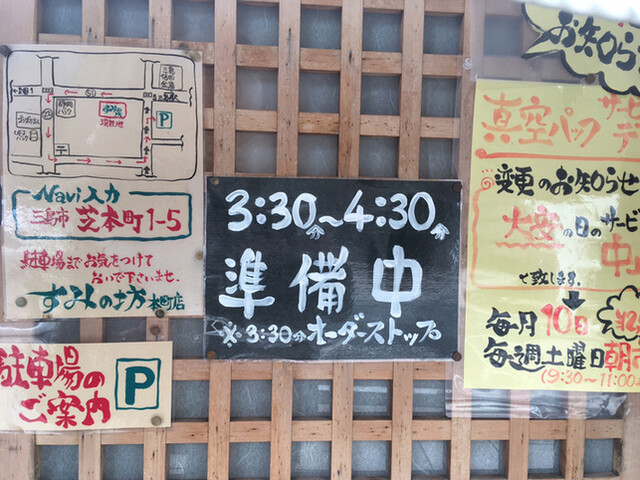 P
現在地
Navi入力
三島市 芝本町1-5
駐車場までお気をつけて
おいで下さいませ。
すみの坊 本町店
駐車場の
ご案内
P
3:30分〜4:30分
準備中
※3:30分オーダーストップ
お知ら
真空パック サービ
デ
変更のお知らせ
大安の日のサービ
中
て致します。
毎月10日
毎週土曜日朝
(9:30〜11:00